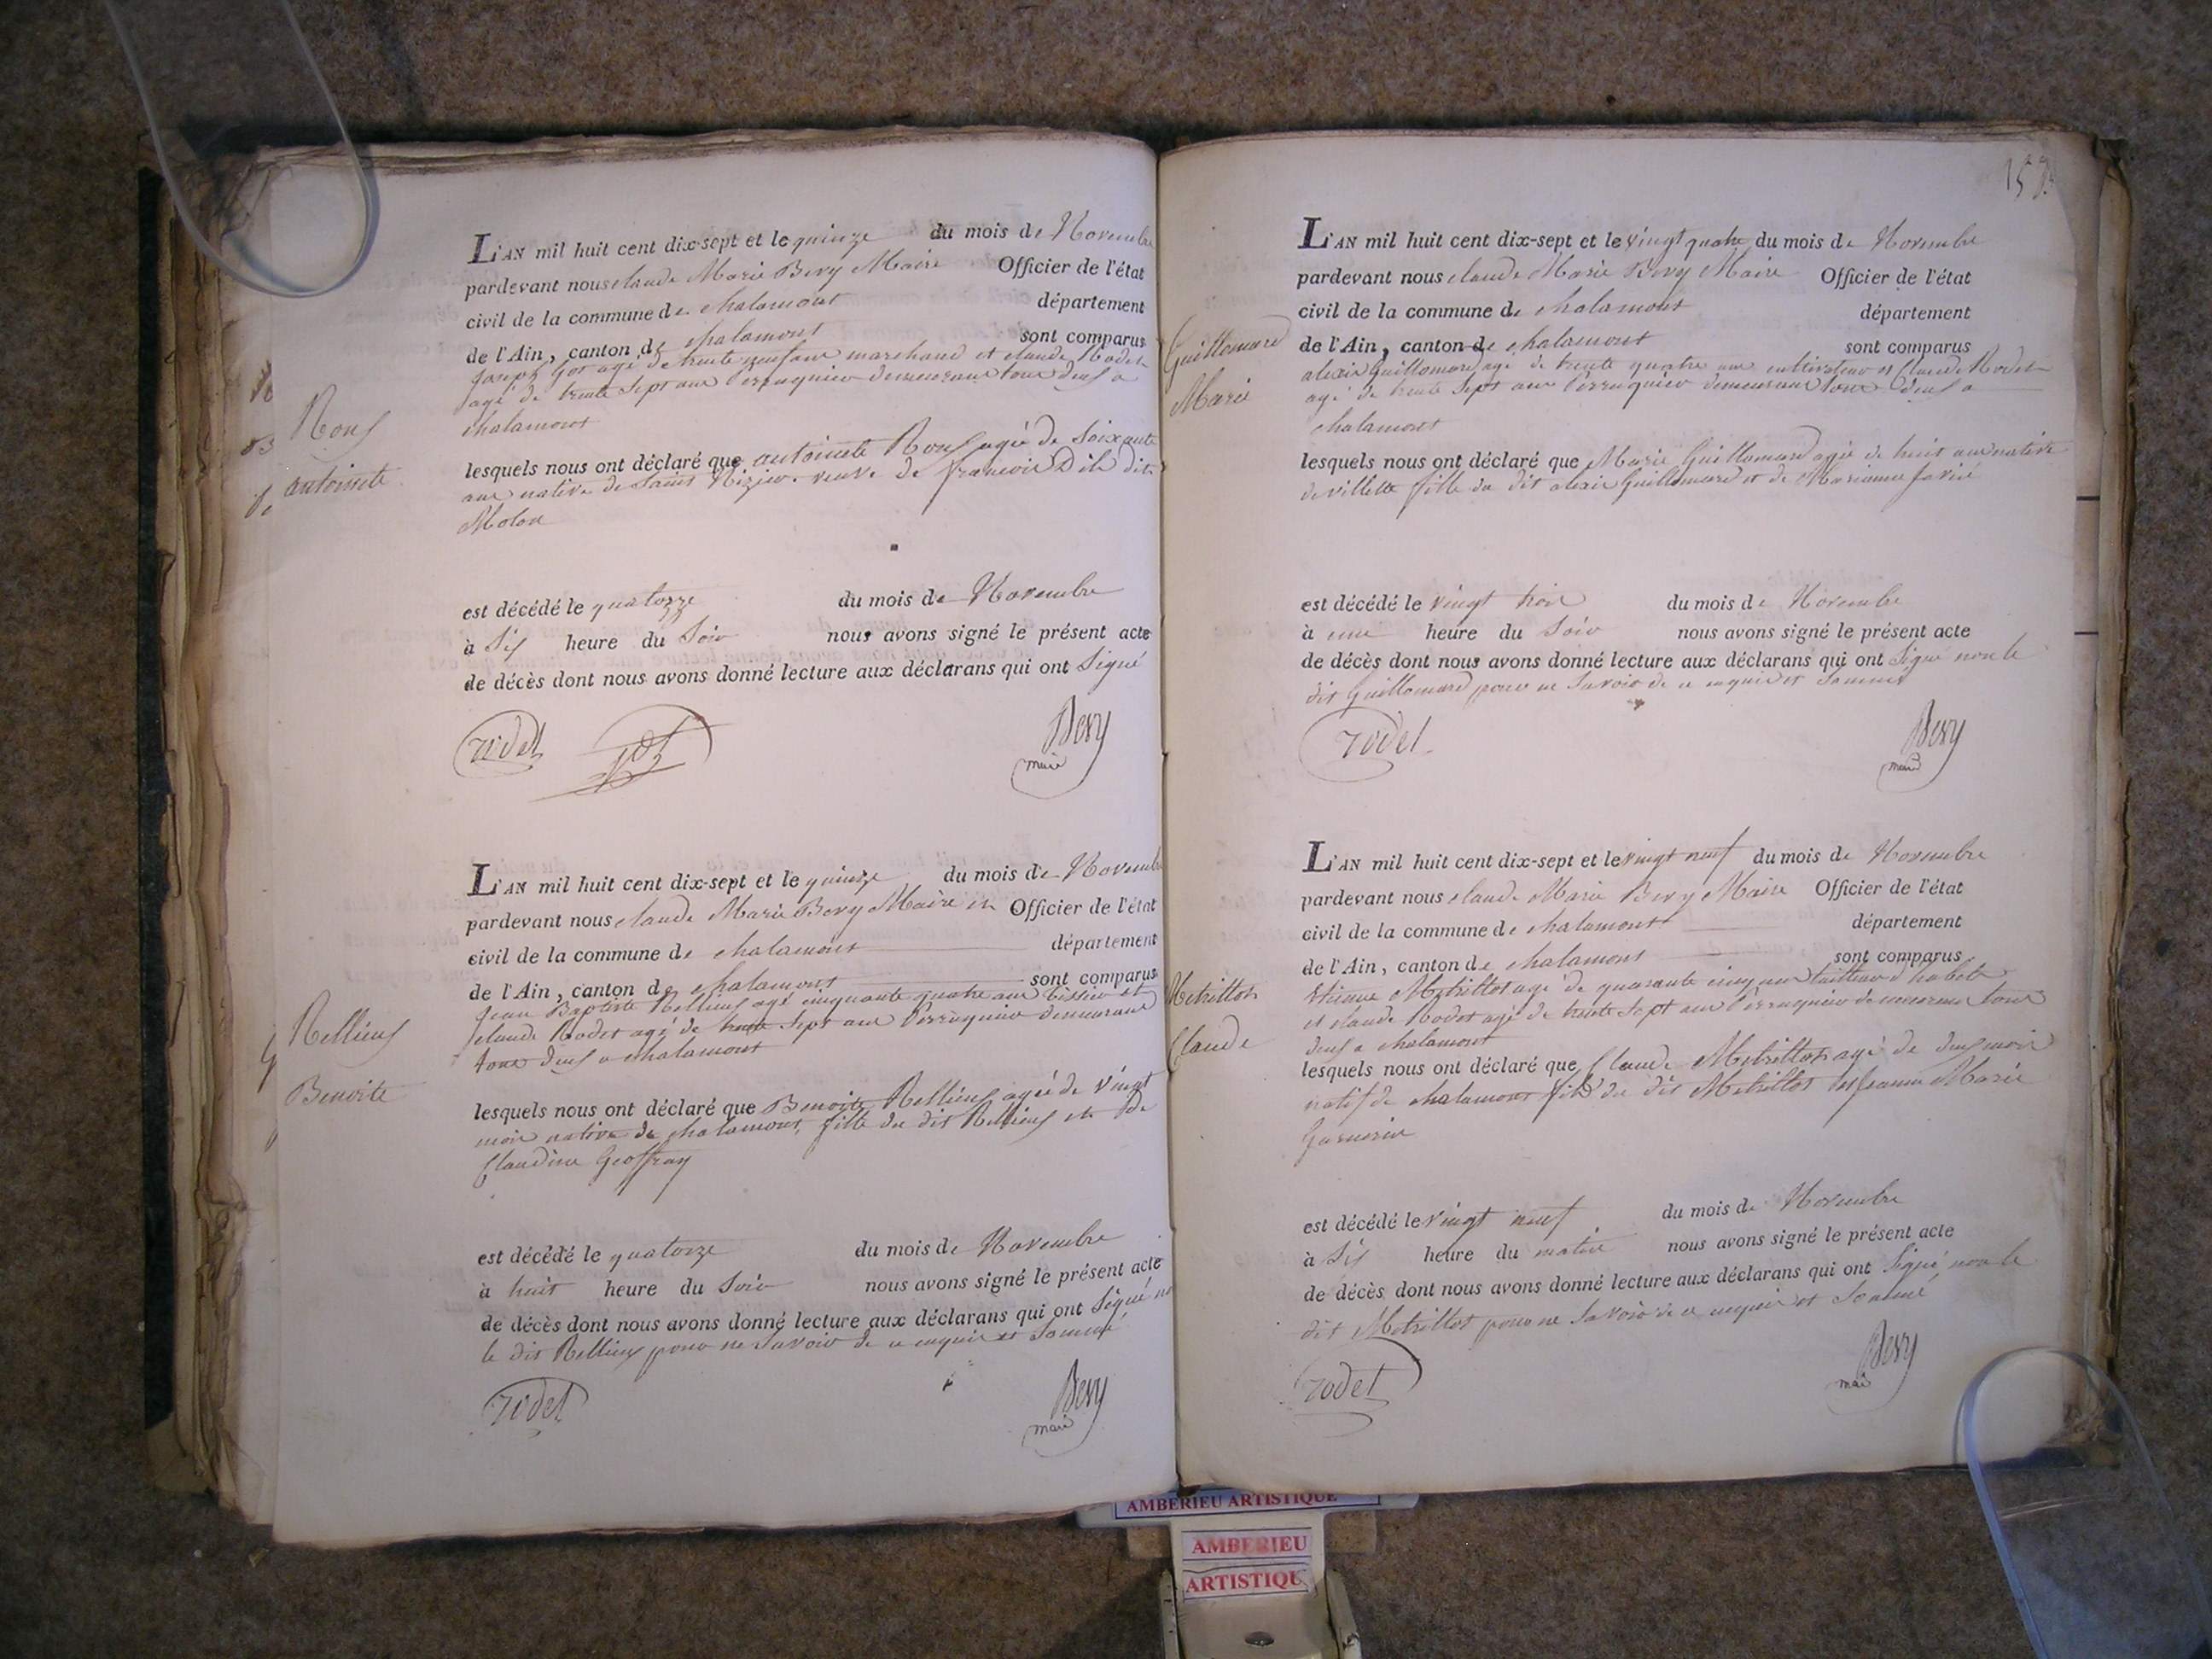 Roux
antoinete
L'AN mil huit cent dix-sept et le quinze du mois de Novembre
pardevant nous claude Marie Bevy Maire Officier de l'état
civil de la commune de chalamont département
de l'Ain, canton de chalamont sont comparus
joseph got agé de trente neuf ans marchand et claude Rodet
agé de trente sept ans Perruquier demeurant tous deux a
chalamont
lesquels nous ont déclaré que antoinete Roux agée de soixante
ans native de saint Nizier veuve de francois dit
Molon
est décédé le quatorze du mois de Novembre
à six heure du soir nous avons signé le présent acte
de décès dont nous avons donné lecture aux déclarans qui ont signé
rodet got Bevy
maire
Rellieux
Benoite
L'AN mil huit cent dix-sept et le quinze du mois de Novembre
pardevant nous claude Marie Bevy Maire et Officier de l'état
civil de la commune de chalamont département
de l'Ain, canton de chalamont sont comparus
jean Baptiste Rellieux agé cinquante quatre ans tissier et
claude Rodet agé de trente sept ans Perruquier demeurant
tous deux a chalamont
lesquels nous ont déclaré que Benoite Rellieux agée de vingt
mois native de chalamont, fille du dit Rellieux et de
Claudine Geoffray
est décédé le quatorze du mois de Novembre
à huit heure du soir nous avons signé le présent acte
de décès dont nous avons donné lecture aux déclarans qui ont signé no
le dit Rellieux pour ne savoir de ce enquis et sommé
rodet Bevy
maire
153
Guillomard
Marie
L'AN mil huit cent dix-sept et le vingt quatre du mois de Novembre
pardevant nous claude Marie Bevy Maire Officier de l'état
civil de la commune de chalamont département
de l'Ain, canton de chalamont sont comparus
alexis Guillomard agé de trente quatre ans cultivateur et Claude Rodet
agé de trente sept ans Perruquier demeurant tous deux a
chalamont
lesquels nous ont déclaré que Marie Guillomard agée de huit ans native
de villette fille du dit alexis Guillomard et de Marianne
est décédé le vingt trois du mois de Novembre
à une heure du soir nous avons signé le présent acte
de décès dont nous avons donné lecture aux déclarans qui ont signé non le
dit Guillomard pour ne savoir de ce enquis et sommé
rodet Bevy
maire
Metrillot
Claude
L'AN mil huit cent dix-sept et le vingt neuf du mois de Novembre
pardevant nous claude Marie Bevy Maire Officier de l'état
civil de la commune de chalamont département
de l'Ain, canton de chalamont sont comparus
etienne Metrillot agé de quarante cinq ans tailleur d'habits
et claude Rodet agé de trente sept ans Perruquier demeurant tous
deux a chalamont
lesquels nous ont déclaré que Claude Metrillot agé de deux mois
natif de chalamont fils du dit Metrillot et jeanne Marie
Garnerin
est décédé le vingt neuf du mois de Novembre
à six heure du matin nous avons signé le présent acte
de décès dont nous avons donné lecture aux déclarans qui ont signé, non le
dit Metrillot pour ne savoir de ce enquis et sommé
rodet Bevy
maire
AMBERIEU ARTISTIQUE
AMBERIEU
ARTISTIQU